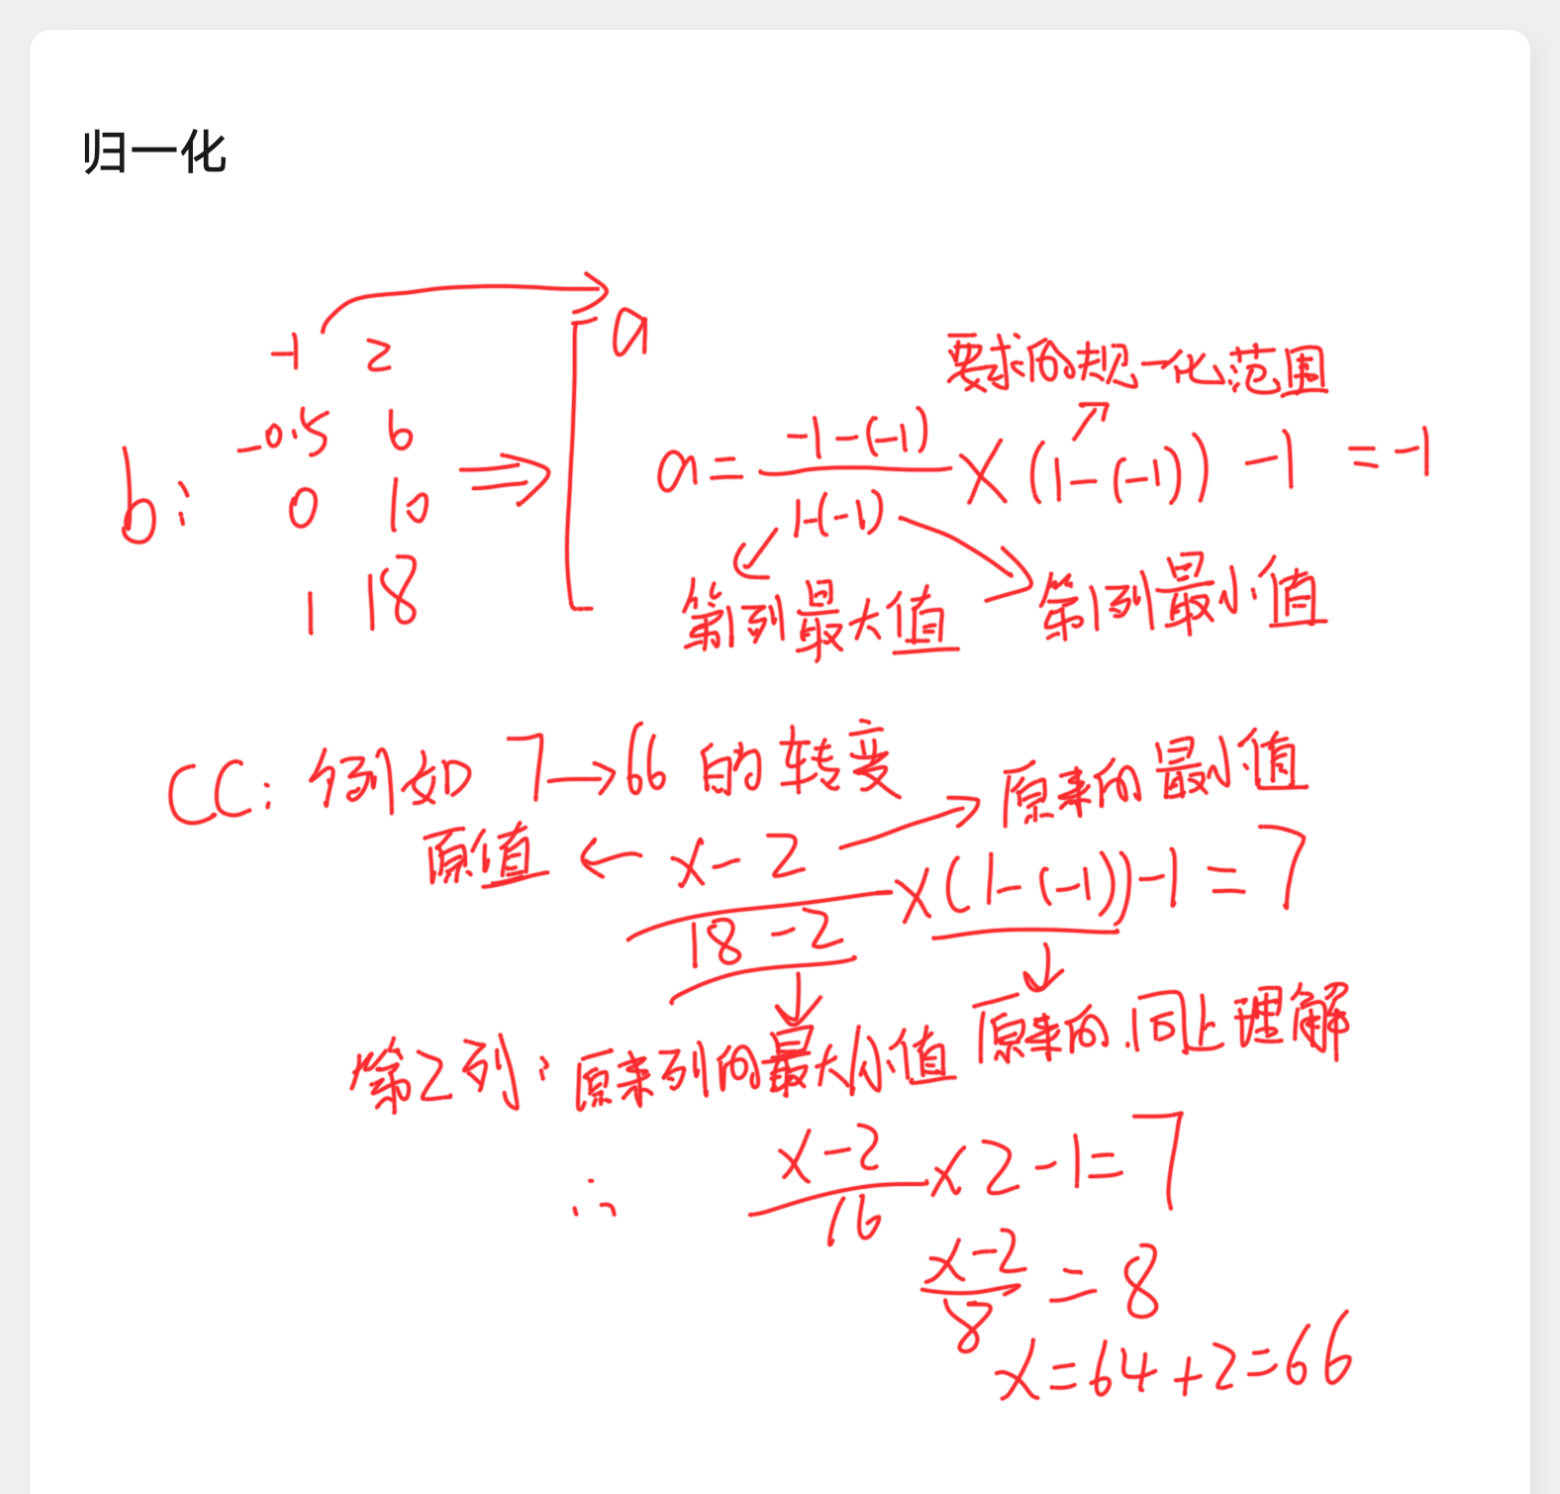 归一化
a
-1 2
要求的规一化范围
-0.5 6
b: ⇒ a = (-1-(-1))/(1-(-1)) × (1-(-1)) -1 = -1
0 10
1 18
第1列最大值 第1列最小值
CC: 例如 7→66 的转变
原来的最小值
原值 ← (x-2)/(18-2) × (1-(-1)) -1 = 7
第2列: 原来列的最大小值 原来的.同上理解
∴ (x-2)/16 ×2 -1 = 7
(x-2)/8 = 8
x = 64+2 = 66